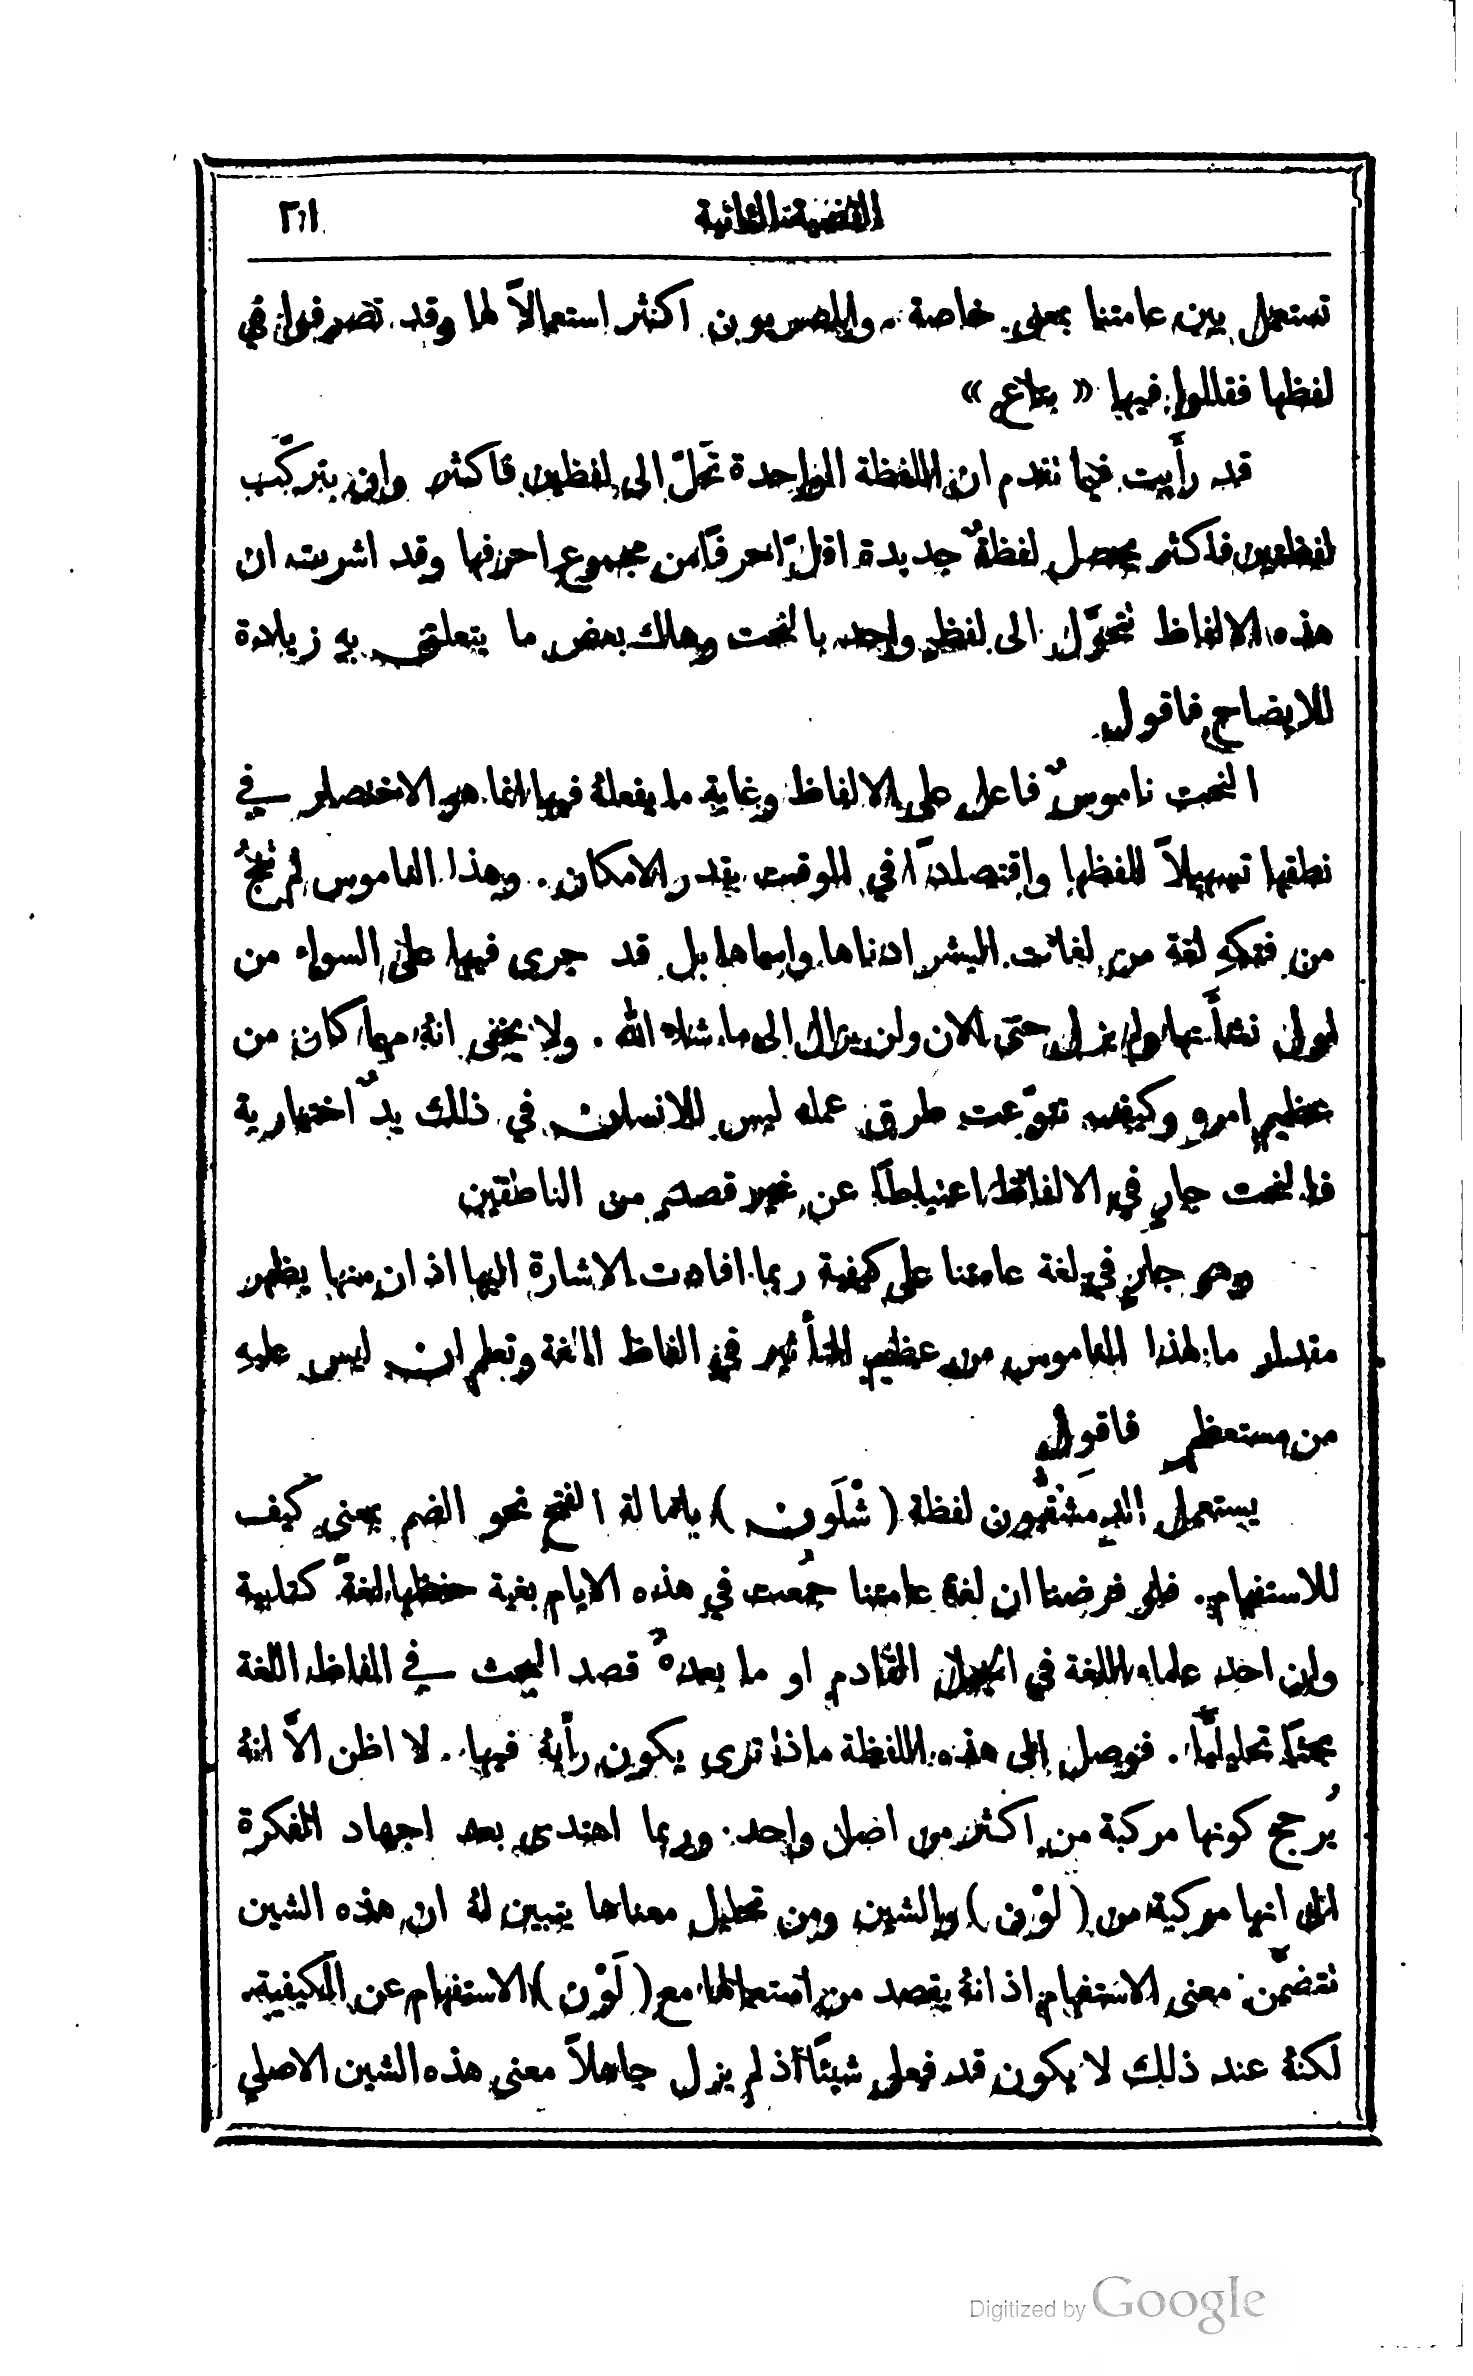 القضية الثانية
تستعمل بين عامتنا بمعنى خاصة. والمصريون اكثر استعمالاً لها وقد تصرفوا في
لفظها فقالوا فيها « بتاع »
قد رأيت فيما تقدم ان اللفظة الواحدة تحلّ الى لفظين فاكثر وان بتركّب
لفظين فاكثر يحصل لفظةٌ جديدة اقلّ احرفًا من مجموع احرفها وقد اشرت ان
هذه الالفاظ تتحوَّل الى لفظٍ واحد بالنحت وهاك بعض ما يتعلق به زيادة
للايضاح فاقول
النحت ناموسٌ فاعل على الالفاظ وغاية ما يفعلهُ فيها انما هو الاختصار في
نطقها تسهيلاً للفظها واقتصادًا في الوقت بقدر الامكان. وهذا الناموس لم تنجُ
من فتكهِ لغة من لغات البشر ادناها واسماها بل قد جرى فيها على السواء من
اول نشأتها ولم يزل حتى الان ولن يزال الى ما شاء الله. ولا يخفى انهُ مهما كان من
عظيم امرهِ وكيف تنوّعت طرق عمله ليس للانسان في ذلك يدٌ اختيارية
فالنحت جارٍ في الالفاظ اعتباطًا عن غير قصدٍ من الناطقين
وهو جارٍ في لغة عامتنا على كيفية ربما افادت الاشارة اليها اذ ان منها يظهر
مقدار ما لهذا الناموس من عظيم التأثير في الفاظ اللغة وتعلم ان ليس عليهِ
من مستعظم فاقول
يستعمل الدِمَشْقِيُّون لفظة (شْلَون) بامالة الفتح نحو الضم بمعنى كيف
للاستفهام. فلو فرضنا ان لغة عامتنا جُمعت في هذه الايام بغية حفظها لغةً كتابية
وان احد علماء اللغة في الجيل القادم او ما بعدهُ قصد البحث في الفاظ اللغة
بحثًا تحليليًّا. فوصل الى هذه اللفظة ماذا ترى يكون رأيهُ فيها. لا اظن الاَّ انهُ
يُرجح كونها مركبة من اكثر من اصل واحد. وربما اهتدى بعد اجهاد الفكرة
الى انها مركبة من (لوْن) والشين ومن تحليل معناها يتبين لهُ ان هذه الشين
تتضمّن معنى الاستفهام اذ انهُ يقصد من استعمالها مع (لَوْن) الاستفهام عن الكيفية.
لكنهُ عند ذلك لا يكون قد فعل شيئًا اذ لم يزل جاهلاً معنى هذه الشين الاصلي
Digitized by Google